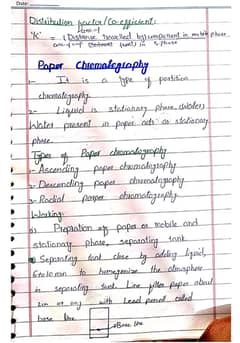 Date:
Distribution factor/Co-efficient:
'K' = (Distance travelled by component in mobile phase
in S. phase
Paper Chromatography
1- It is a type of partition
chromatography.
2- Liquid is stationary phase. (Water)
Water present in paper acts as stationary
phase.
Types of Paper chromatography
1- Ascending paper chromatography
2- Descending paper chromatography
3- Radial paper chromatography
Working:
paper or mobile and
stationary phase, separating tank
Separating tank close by adding liquid,
to homogenize the atmosphere
in separating tank. Line filter paper about
2cm with Lead pencil called
base line
Base line